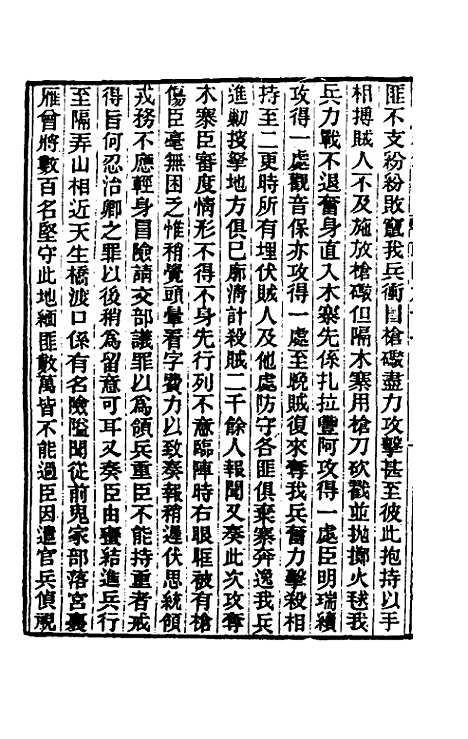 匪不支紛紛敗竄我兵衝冒槍礮盡力攻擊甚至彼此抱持以手
相搏賊人不及施放槍礮但隔木寨用槍刀砍戳並拋擲火毬我
兵力戰不退奮身直入木寨先係扎拉豐阿攻得一處臣明瑞續
攻得一處觀音保亦攻得一處至晚賊復來奪我兵奮力擊殺相
持至二更時所有埋伏賊人及他處防守各匪俱棄寨奔逸我兵
進勦接擊地方俱已廓清計殺賊二千餘人報聞又奏此次攻奪
木寨臣審度情形不得不身先行列不意臨陣時右眼眶被有槍
傷臣毫無困乏惟稍覺頭暈看字費力以致奏報稍遲伏思統領
戎務不應輕身冒險請交部議罪以為領兵重臣不能持重者戒
得旨何忍治卿之罪以後稍為留意可耳又奏臣由蠻結進兵行
至隔弄山相近天生橋渡口係有名險隘聞從前鬼家部落宮裏
雁曾將數百名堅守此地緬匪數萬皆不能過臣因遣官兵偵視